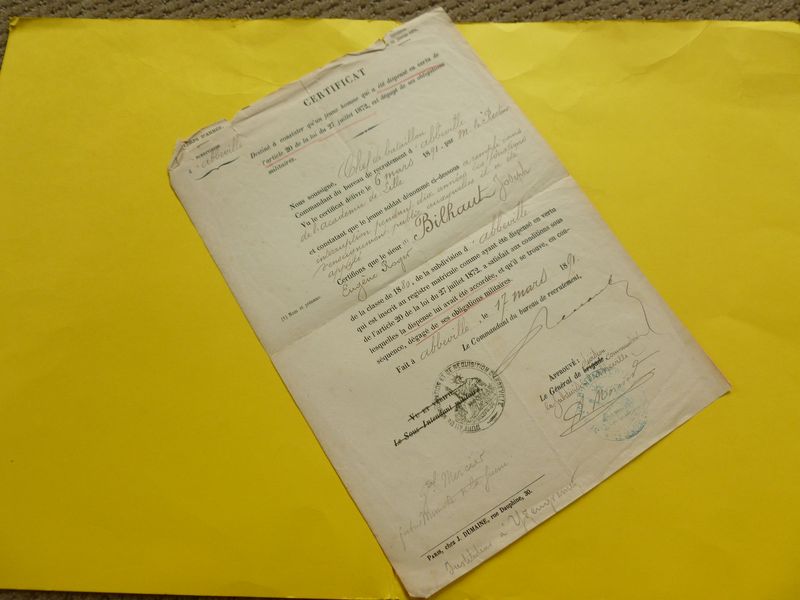 CERTIFICAT
Destiné à constater qu'un jeune homme qui a été dispensé en vertu de
l'article 20 de la loi du 27 juillet 1872, est dégagé de ses obligations
militaires.
D'ARMÉE.
SUBDIVISION
d' abbeville
Nous soussigné, Chef de bataillon
Commandant du bureau de recrutement d' abbeville
Vu le certificat délivré le 6 mars 1891, par M. le Recteur
de l'académie de Lille
et constatant que le jeune soldat dénommé ci-dessous a rempli sans
interruption pendant dix années les fonctions
d'enseignement public auxquelles il a été
appelé
Certifions que le sieur Bilhaut Joseph
Eugène Roger
(1) Nom et prénoms.
de la classe de 1880, de la subdivision d' abbeville
qui est inscrit au registre matricule comme ayant été dispensé en vertu
de l'article 20 de la loi du 27 juillet 1872, a satisfait aux conditions sous
lesquelles la dispense lui avait été accordée, et qu'il se trouve, en con-
séquence, dégagé de ses obligations militaires.
Fait à abbeville, le 17 mars 1891.
Le Commandant du bureau de recrutement,
Vu et vérifié :
Le Sous-Intendant militaire,
APPROUVÉ :
Le Général de brigade Commandant
Gl Mercier
futur Ministre de la Guerre
PARIS, chez J. DUMAINE, rue Dauphine, 30.
Instituteur à Yzengremer